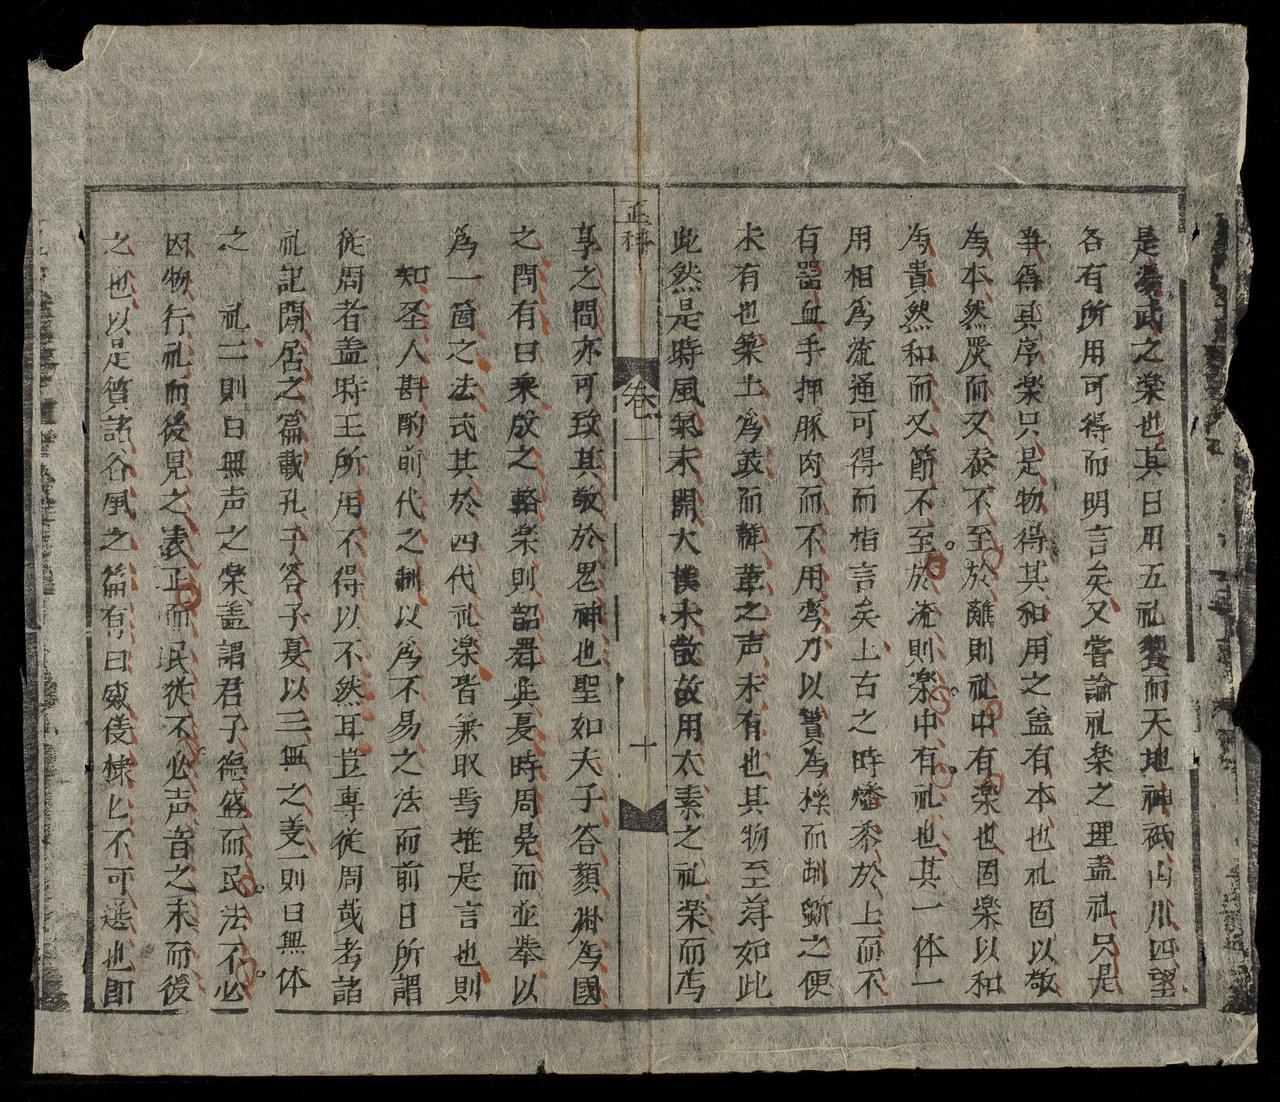 是湯武之楽也其曰用五礼饗而天地神祇山川四望
各有所用可得而明言矣又嘗論礼楽之理盖礼只是
事得其序楽只是物得其和用之盖有本也礼固以敬
為本然严而又泰不至於離則礼中有楽也固楽以和
為貴然和而又節不至於流則楽中有礼也其一体一
用相為流通可得而指言矣上古之時燔黍於上而不
有器血手押豚肉而不用鸾刀以 為樽而 之便
未有也築土為鼓而 韋之声未有也其物至薄如此
此然是時風氣未開大樸未散故用太素之礼楽而為
正科
卷一
十
享之間亦可致其敬於鬼神也聖如夫子答顏渊為國
之問有曰乘殷之輅楽則韶舞与夏時周冕而並挙以
為一箇之法式其於四代礼楽皆兼取焉推是言也則
知圣人斟酌前代之制以為不易之法而前日所謂
從周者盖時王所用不得以不然耳豈專從周哉考諸
礼記閒居之篇載孔子答子夏以三無之姜一則曰無体
之 礼二則曰無声之楽盖謂君子德盛而民法不必
因物行礼而後見之表正而民從不必声音之末而後
之也以是質諸谷風之篇有曰威儀棣匕不可選也即